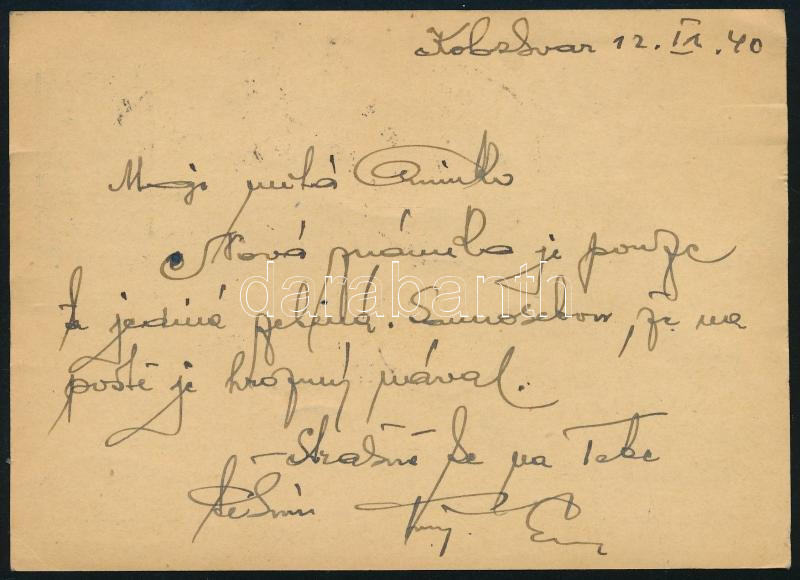 Kolozsvar 12. IX. 40
Moje milá Aninko
Nová známka je pouze
ta jediná zelená. Samošebou, že na
poště je hrozný nával.
Strašně se na Tebe
těším Tvůj
darabanth